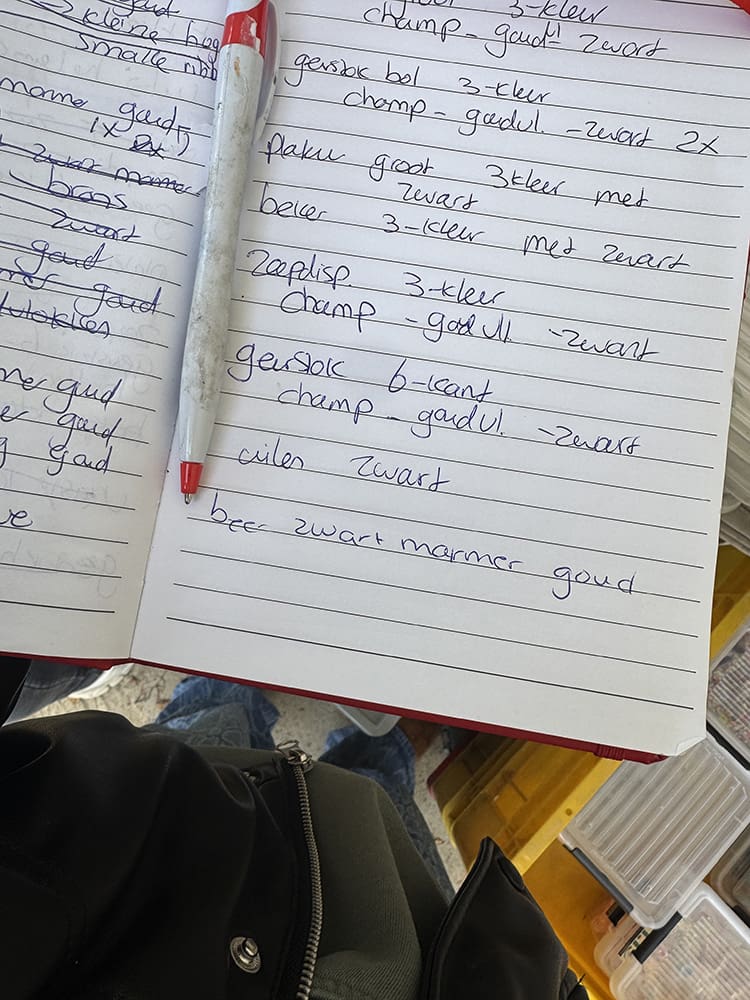 kleine
smalle
marmer goud
1x 2x
zwart marmer
brons
zwart
goud
goud
goud
goud
goud
3-kleur
champ - goud! zwart
geurstok bol 3-kleur
champ - goudvl. - zwart 2x
groot 3kleur met
zwart
beker 3-kleur met zwart
zeepdisp. 3-kleur
champ - goudvl. - zwart
geurstok 6-kant
champ - goudvl. - zwart
uilen zwart
beer zwart marmer goud